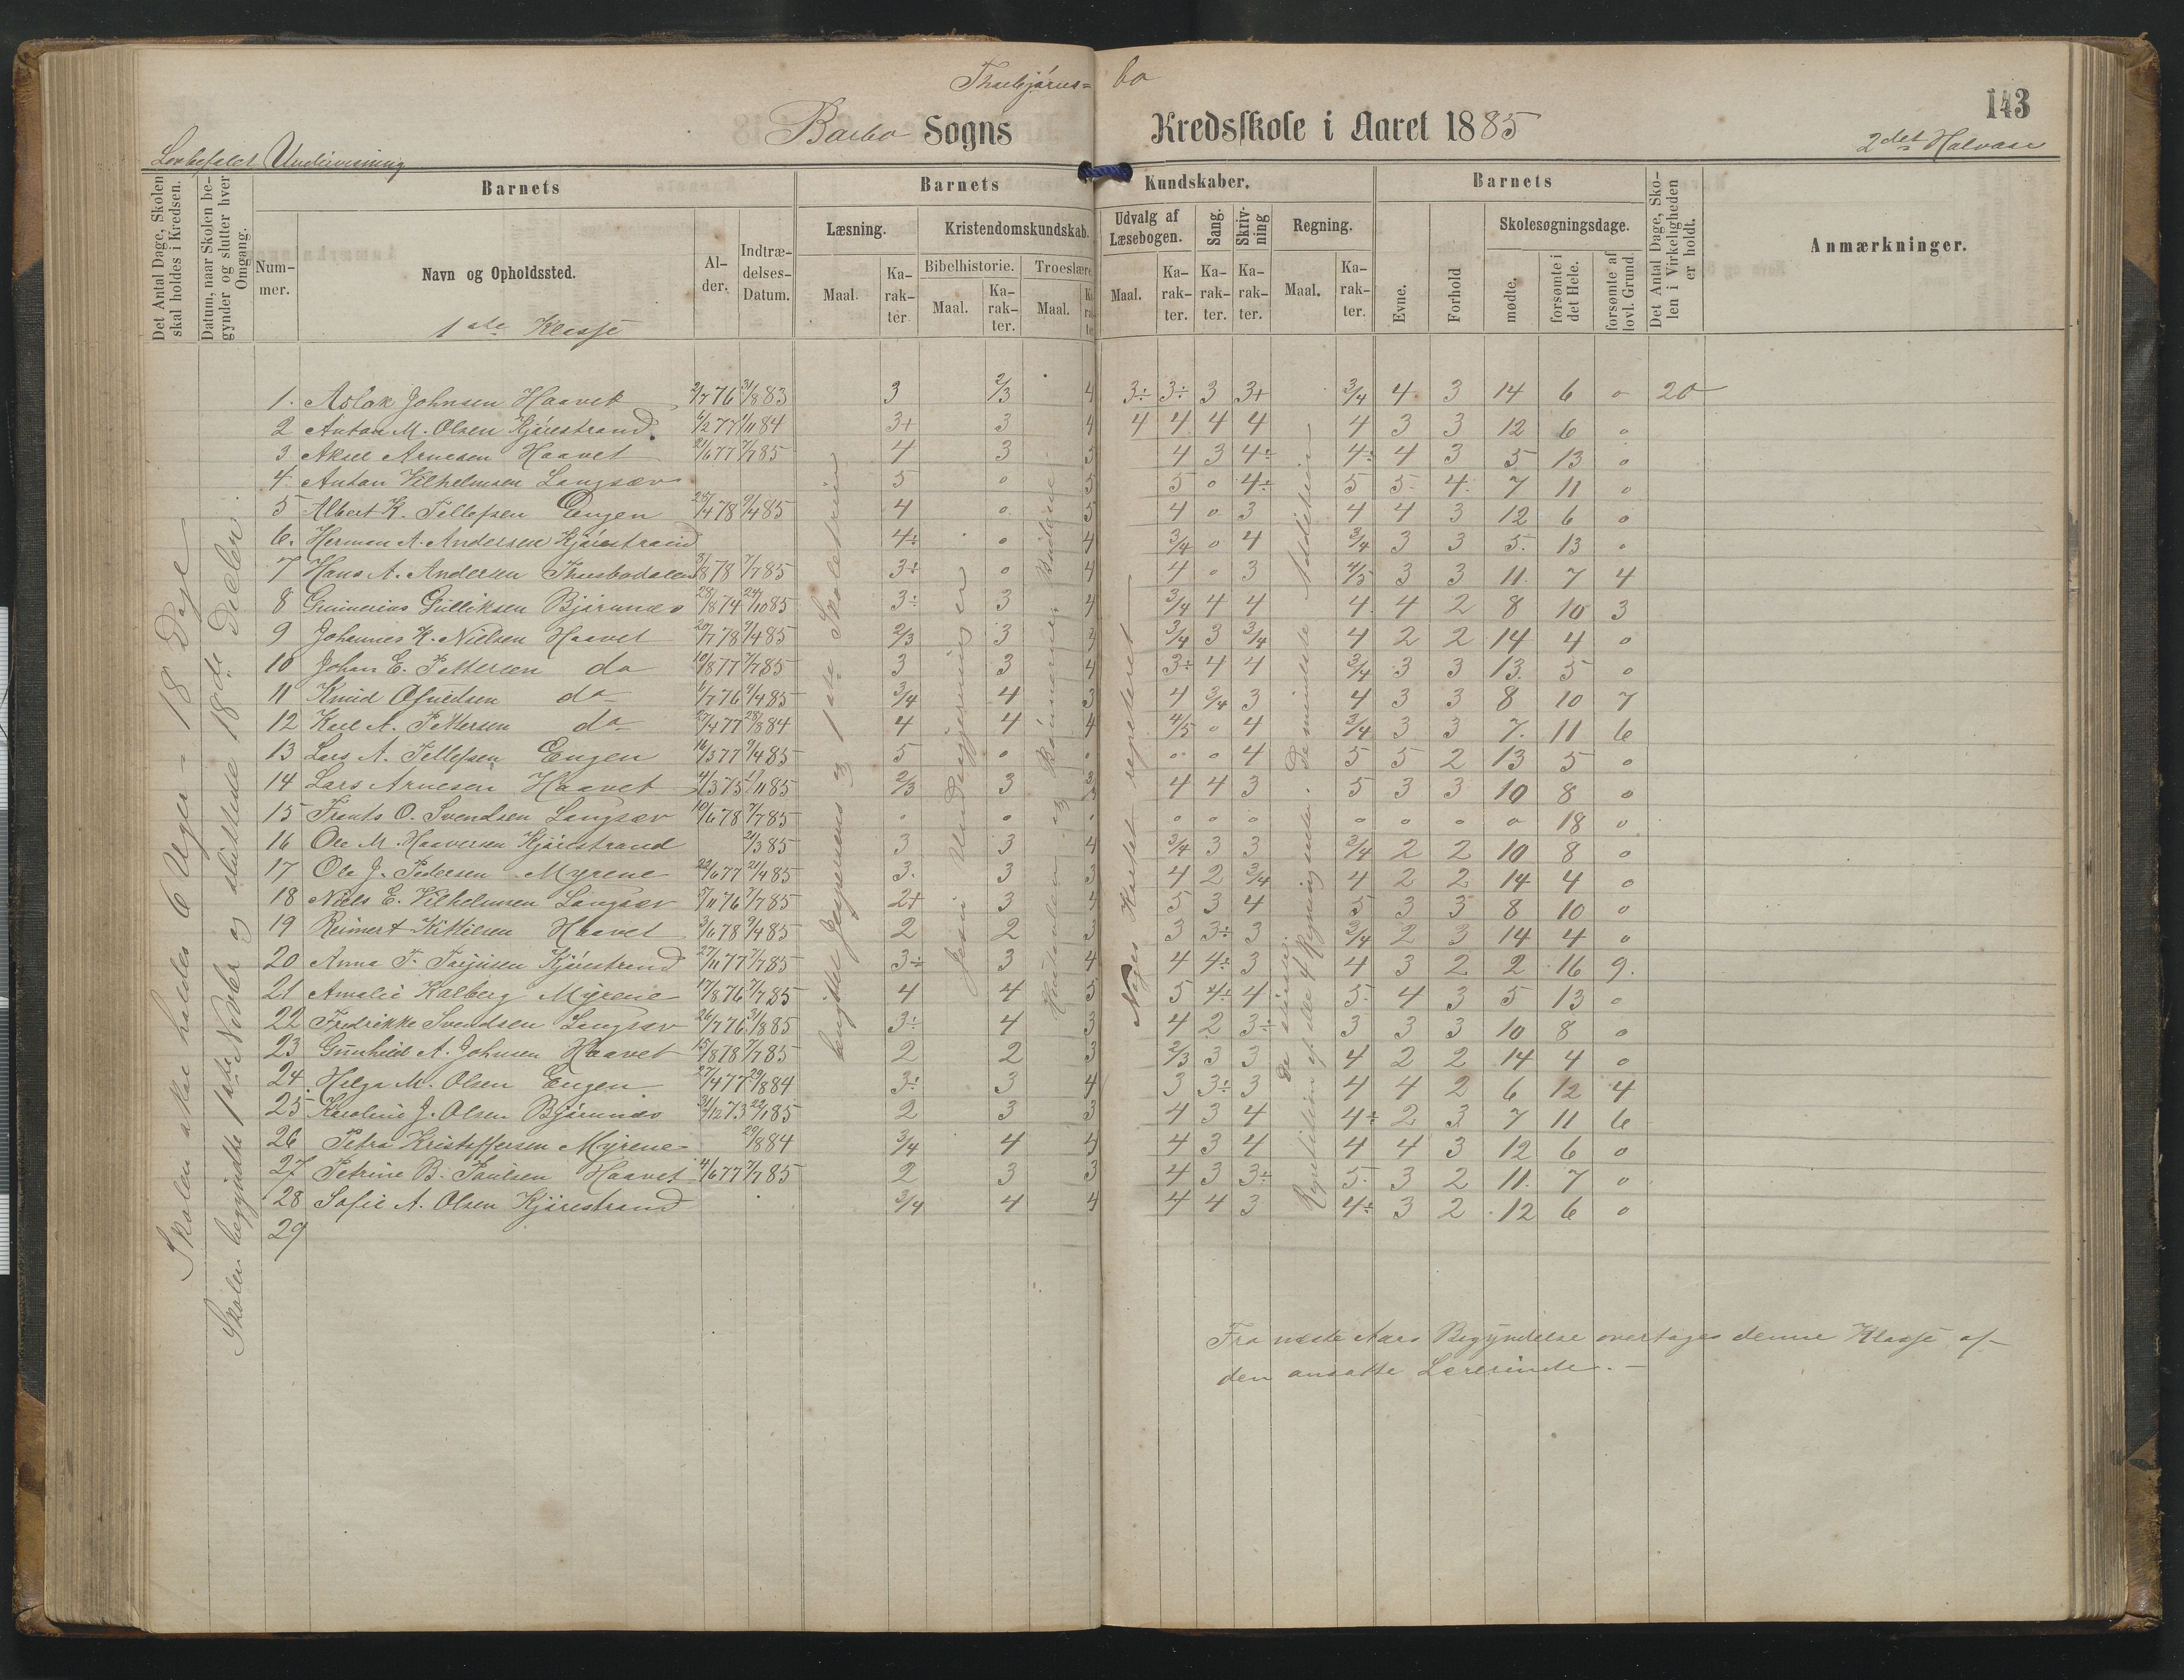 Thorbjørns= bo
143
Barbo Sogns Kredsskole i Aaret 1885
Lovbefalet Undervisning
2det Halvaar
Det Antal Dage, Skolen skal holdes i Kredsen.
Datum, naar Skolen begynder og slutter hver Omgang.
Barnets
Barnets Kundskaber.
Barnets
Det Antal Dage, Skolen i Virkeligheden er holdt.
Anmærkninger.
Nummer.
Navn og Opholdssted.
Alder.
Indtrædelses-Datum.
Læsning.
Kristendomskundskab.
Bibelhistorie.
Troeslære
Udvalg af Læsebogen.
Sang.
Skrivning
Regning.
Evne.
Forhold
Skolesøgningsdage.
mødte.
forsømte i det Hele.
forsømte af lovl. Grund.
Maal. Karakter. Maal. Karakter. Maal. Maal. Karakter. Karakter. Karakter. Maal. Karakter.
1ste Klasse
1. Aslak Johnsen Haavet 2/7 76 31/8 83 3 2/3 4 3÷ 3÷ 3 3+ 3/4 4 3 14 6 0 20
2 Anton M. Olsen Kjørestrand 3+ 3 4 4 4 4 4 4 3 3 12 6 0
3 Aksel Arnesen Haavet 21/6 77 7/7 85 4 3 5 4 3 4÷ 4÷ 4 3 5 13 0
4. Anton Vilhelmsen Langsæv 5 0 5 5 0 4÷ 5 5 4 7 11 0
5 Albert K. Tellefsen Engen 28/4 78 9/4 85 4 0 5 4 0 3 4 4 3 12 6 0
6. Herman A. Andersen Kjørestrand 4÷ 0 4 3/4 0 4 3/4 3 3 5 13 0
7 Hans A. Andersen 7/7 85 3÷ 0 4 4 0 3 4/5 3 3 11 7 4
8 Gulliksen Bjørnnes 28/8 74 24/10 85 3÷ 3 4 3/4 4 4 4 4 2 8 10 3
9 Johannes K. Nielsen Haavet 20/7 78 9/4 85 2/3 3 3 3/4 3 3/4 4 2 2 14 4 0
10 Johan E. Pettersen do 19/8 77 7/7 85 3 3 4 3÷ 4 4 3/4 3 3 13 5 0
11 Knud Olsen do 9/4 85 3/4 4 3 4 3/4 3 4 3 3 8 10 7
12 Karl A. Pettersen do 27/4 77 28/8 84 4 4 4 4/5 0 4 3/4 3 3 7 11 6
13 Lars A. Tellefsen Engen 9/4 85 5 0 0 0 0 4 5 5 2 13 5 0
14 Lars Arnesen Haavet 2/3 3 4 4 3 5 3 3 10 8 0
15 Frants O. Svendsen Langsæv 10/6 78 7/7 85 0 0 0 0 0 0 0 0 0 0 18 0
16 Ole M. Haaversen Kjørestrand 3 3 4 3/4 3 3 3/4 2 2 10 8 0
17 Ole J. Pedersen Myrene 22/6 77 21/4 85 3. 3 3 4 2 3/4 4 2 2 14 4 0
18 Niels E. Vilhelmsen Langsæv 7/7 85 2+ 3 4 5 3 4 5 3 3 8 10 0
19 Reimert Kittilsen Haavet 3/6 78 9/4 85 2 2 3 3 3÷ 3 3/4 2 3 14 4 0
20 Anna T. Tarjusen Kjørestrand 27/11 77 7/7 85 3÷ 3 4 4 4÷ 3 4 3 2 2 16 9.
21 Amalie Kalberg Myrene 17/8 76 7/7 85 4 4 5 5 4÷ 4 5 4 3 5 13 0
22 Fredrikke Svendsen Langsæv 26/7 76 31/8 85 3÷ 4 3 4 2 3÷ 3 3 3 10 8 0
23 Gunhild A. Johnsen Haavet 15/8 78 7/7 85 2 2 3 2/3 3 3 4 2 2 14 4 0
24 Helga M. Olsen Engen 27/4 77 29/8 84 3÷ 3 4 3 3÷ 3 4 4 2 6 12 4
25 Karoline J. Olsen Bjørnnes 31/12 73 22/1 85 2 3 3 4 3 4 4÷ 2 3 7 11 6
26 Petra Kristoffersen Myrene 29/8 84 3/4 4 5 4 3 4 4 4 3 12 6 0
27 Petrine B. Paulsen Haavet 4/6 77 7/7 85 2 3 3 4 3 3÷ 5 3 2 11 7 0
28 Sofie A. Olsen Kjørestrand 3/4 4 4 4 4 3 4÷ 3 2 12 6 0
29
Skolen skal holdes 6 Uger = 18 Dage
Skolen begyndte 1ste Novbr og sluttede 18de Decbr.
benyttet Jensens 1ste Skoletrin
Jesu Undergjerninger
Noget Kortet repeteret
De mindste Addition
Repetition af de 4 Regninger
Fra næste Aars Begyndelse overtages denne Klasse af
den ansatte Lærerinde. —